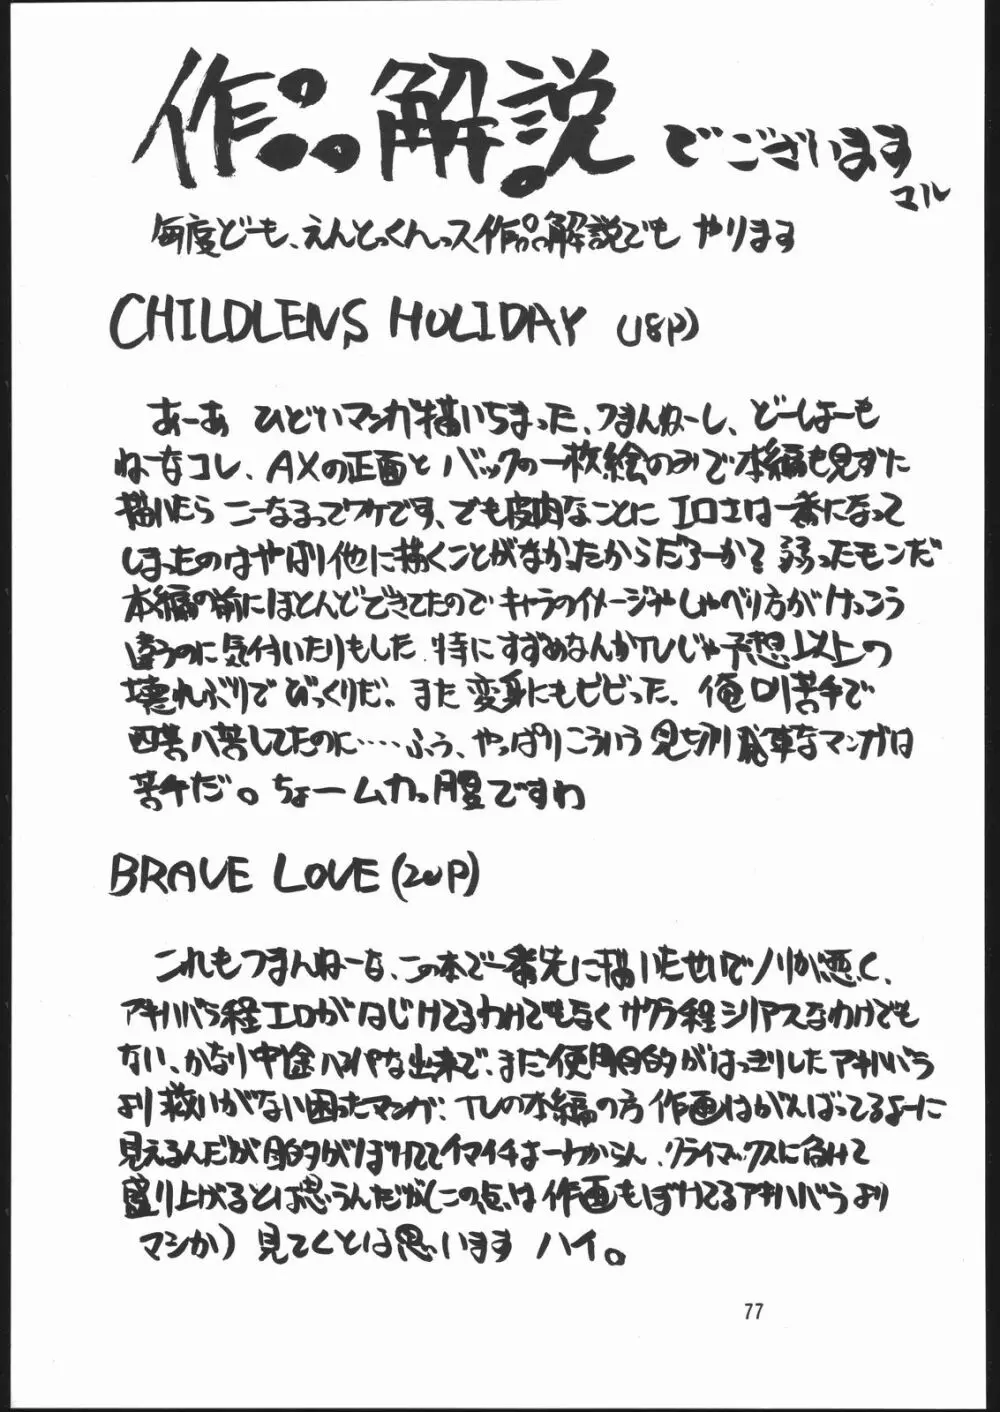 作品解説でございます
マル
毎度どーも、えんとっくんっス作品解説でも やります
CHILDLENS HOLIDAY (18P)
あーあ ひどいマンガ描いちまった、つまんねーし、どーしょーも
ねーなコレ、AXの正面とバックの一枚絵のみで本編も見ずに
描いたら こーなるってワケです、でも皮肉なことに エロさは一番になって
しまったのはやはり他に描くことがなかったからだろーか?弱ったモンだ
本編の前にほとんどできてたのでキャラのイメージやしゃべり方がけっこう
違うのに気付いたりもした 特にすずめなんかTVじゃ予想以上の
壊れぶりでびっくりだ。また変身にもビビった。俺 苦手で
四苦八苦してたのに‥‥ふう、やっぱりこういう見切り発車なマンガは
苦手だ。ちょームカっ腹ですわ
BRAVE LOVE (20P)
これもつまんねーな、この本で一番先に描いたせいでノリが悪く、
アキハバラ程エロがはじけてるわけでもなくサクラ程シリアスなわけでも
ない、かなり中途ハンパな出来で、まだ使用目的がはっきりしたアキハバラ
より救いがない困ったマンガ、TVの本編の方 作画はがんばってるよーに
見えるんだが目的がぼけててイマイチよーわからん、クライマックスに向けて
盛り上げるとは思うんだが(この点は作画もぼけてるアキハバラより
マシか) 見てくとは思います ハイ。
77